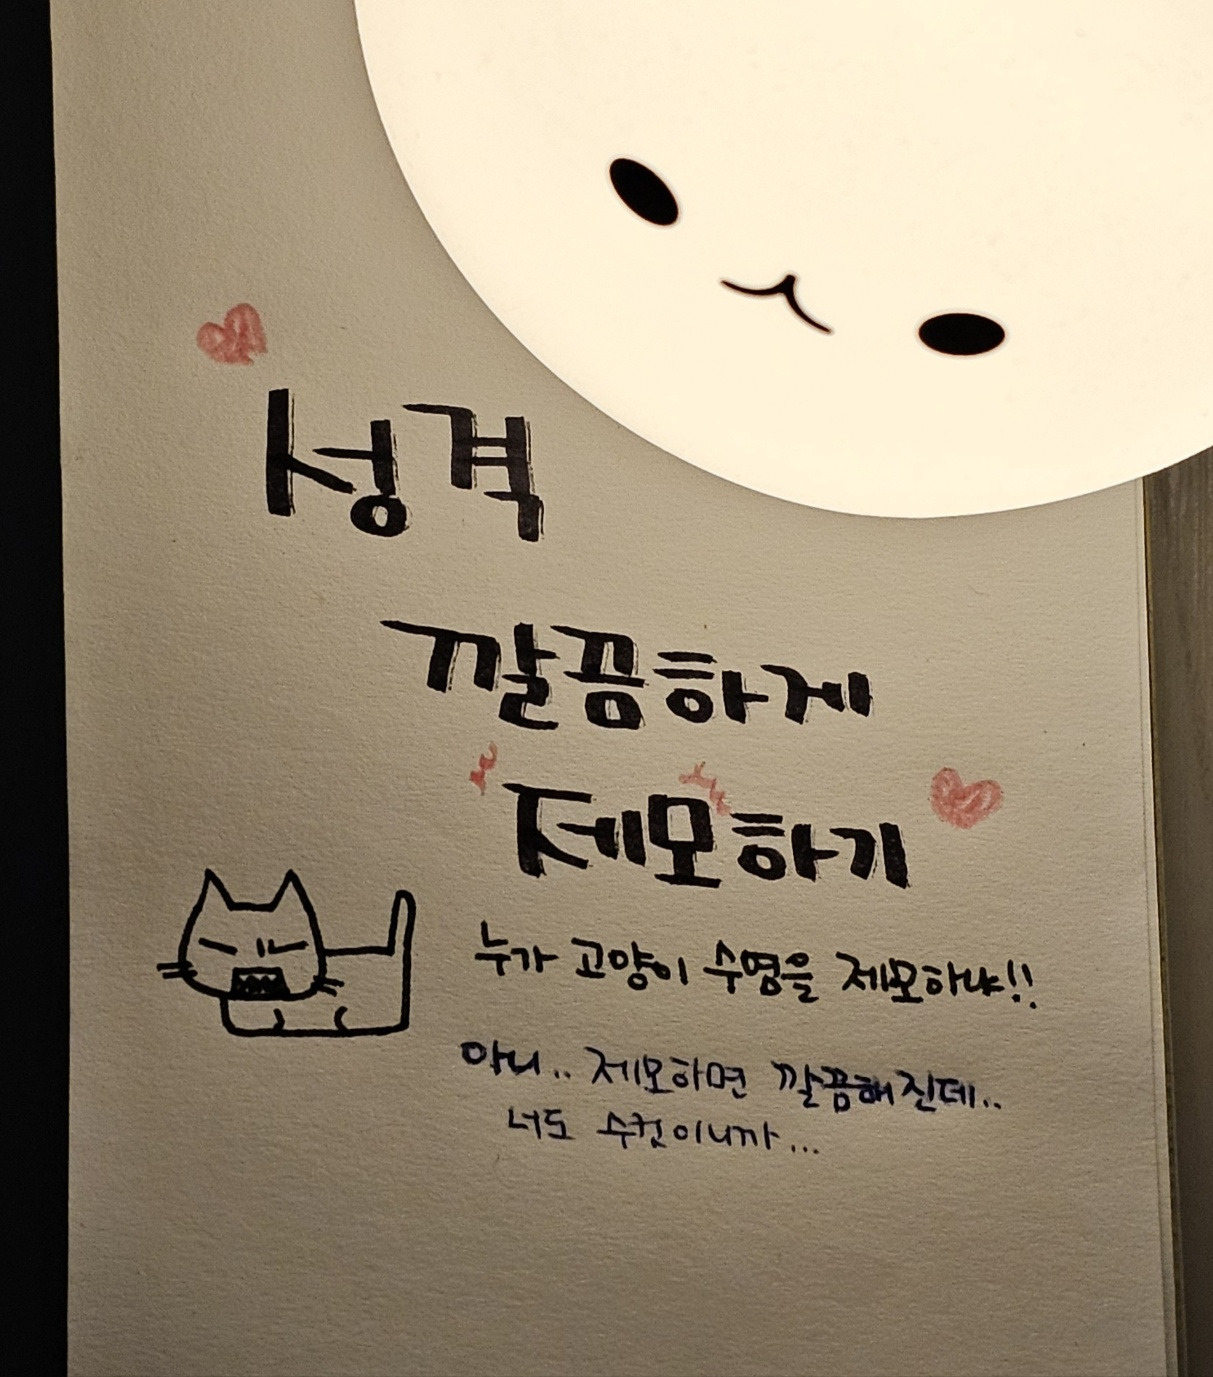 성격
깔끔하게
제모하기
누가 고양이 수염을 제모하냐!!
아니.. 제모하면 깔끔해진데..
너도 수컷이니까...